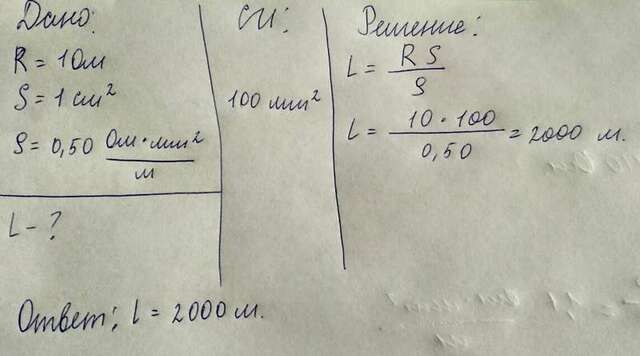 Дано:
R = 10м
S = 1 см²
ρ = 0,50 Ом·мм²/м
L - ?
СИ:
100 мм²
Решение:
L = RS/ρ
L = 10·100/0,50 = 2000 м.
Ответ: L = 2000 м.